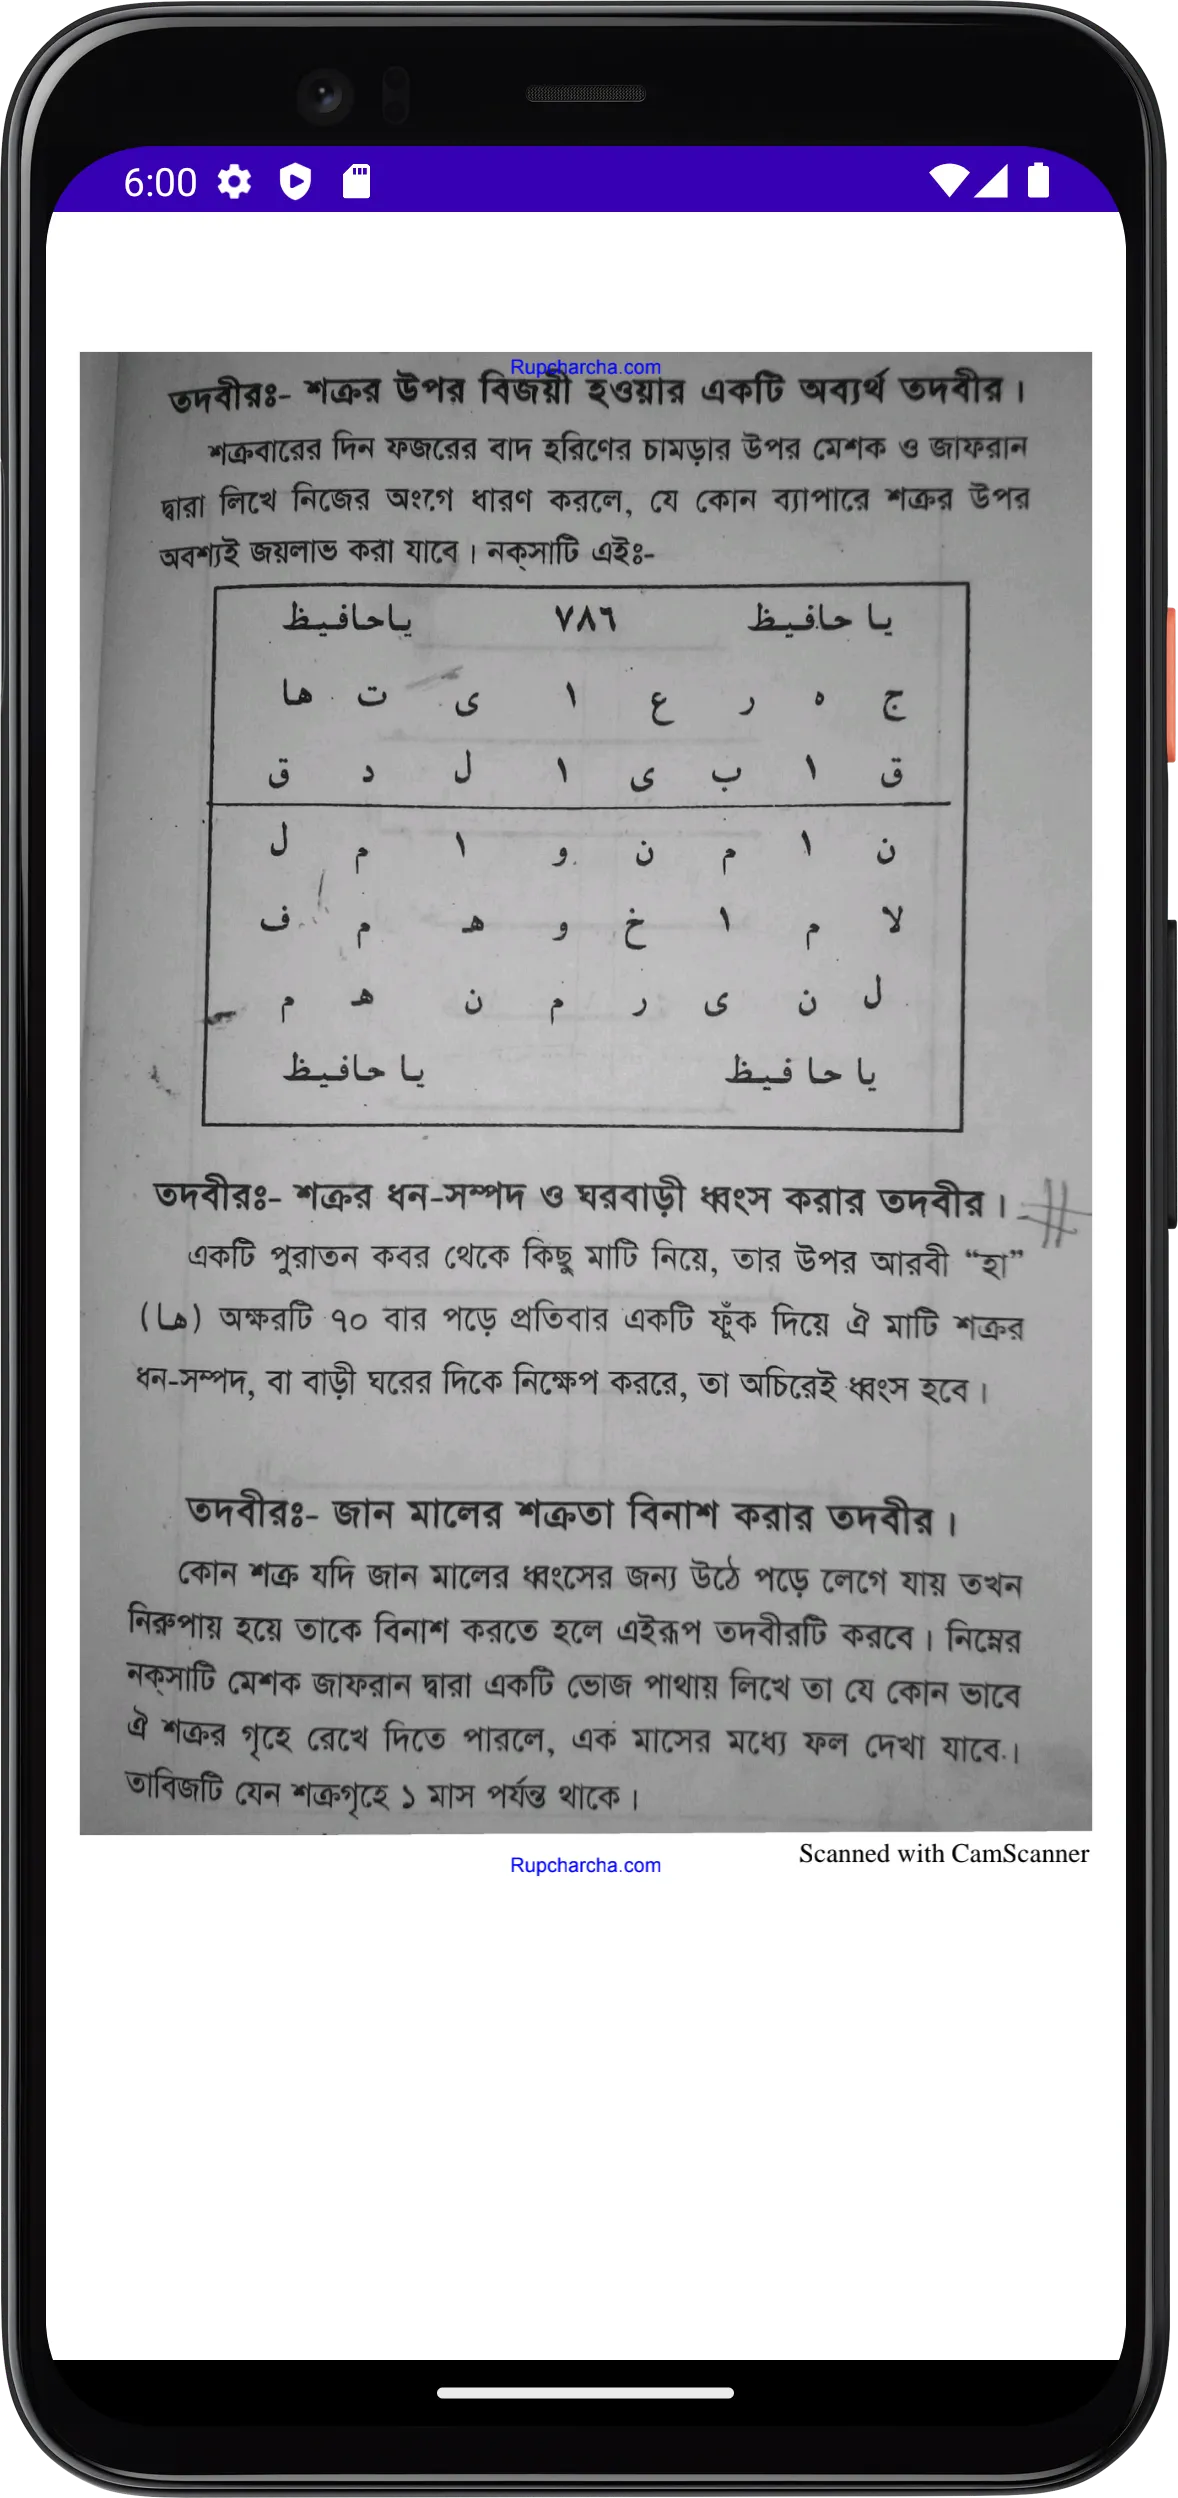 6:00
Rupcharcha.com
তদবীরঃ- শত্রুর উপর বিজয়ী হওয়ার একটি অব্যর্থ তদবীর।
শক্রবারের দিন ফজরের বাদ হরিণের চামড়ার উপর মেশক ও জাফরান
দ্বারা লিখে নিজের অংগে ধারণ করলে, যে কোন ব্যাপারে শত্রুর উপর
অবশ্যই জয়লাভ করা যাবে। নক্সাটি এইঃ-
يا حافيظ ٧٨٦ ياحافيظ
ج ه ر ع ا ى ت ها
ق ا ب ى ا ل د ق
ن ا م ن و ا م ل
لا م ا خ و هـ م ف
ل ن ى ر م ن هـ م
يا حا فيظ يا حافيظ
তদবীরঃ- শত্রুর ধন-সম্পদ ও ঘরবাড়ী ধ্বংস করার তদবীর।
একটি পুরাতন কবর থেকে কিছু মাটি নিয়ে, তার উপর আরবী “হা”
(ها) অক্ষরটি ৭০ বার পড়ে প্রতিবার একটি ফুঁক দিয়ে ঐ মাটি শত্রুর
ধন-সম্পদ, বা বাড়ী ঘরের দিকে নিক্ষেপ কররে, তা অচিরেই ধ্বংস হবে।
তদবীরঃ- জান মালের শত্রুতা বিনাশ করার তদবীর।
কোন শত্রু যদি জান মালের ধ্বংসের জন্য উঠে পড়ে লেগে যায় তখন
নিরুপায় হয়ে তাকে বিনাশ করতে হলে এইরূপ তদবীরটি করবে। নিম্নের
নক্সাটি মেশক জাফরান দ্বারা একটি ভোজ পাথায় লিখে তা যে কোন ভাবে
ঐ শত্রুর গৃহে রেখে দিতে পারলে, এক মাসের মধ্যে ফল দেখা যাবে।
তাবিজটি যেন শত্রুগৃহে ১ মাস পর্যন্ত থাকে।
Scanned with CamScanner
Rupcharcha.com